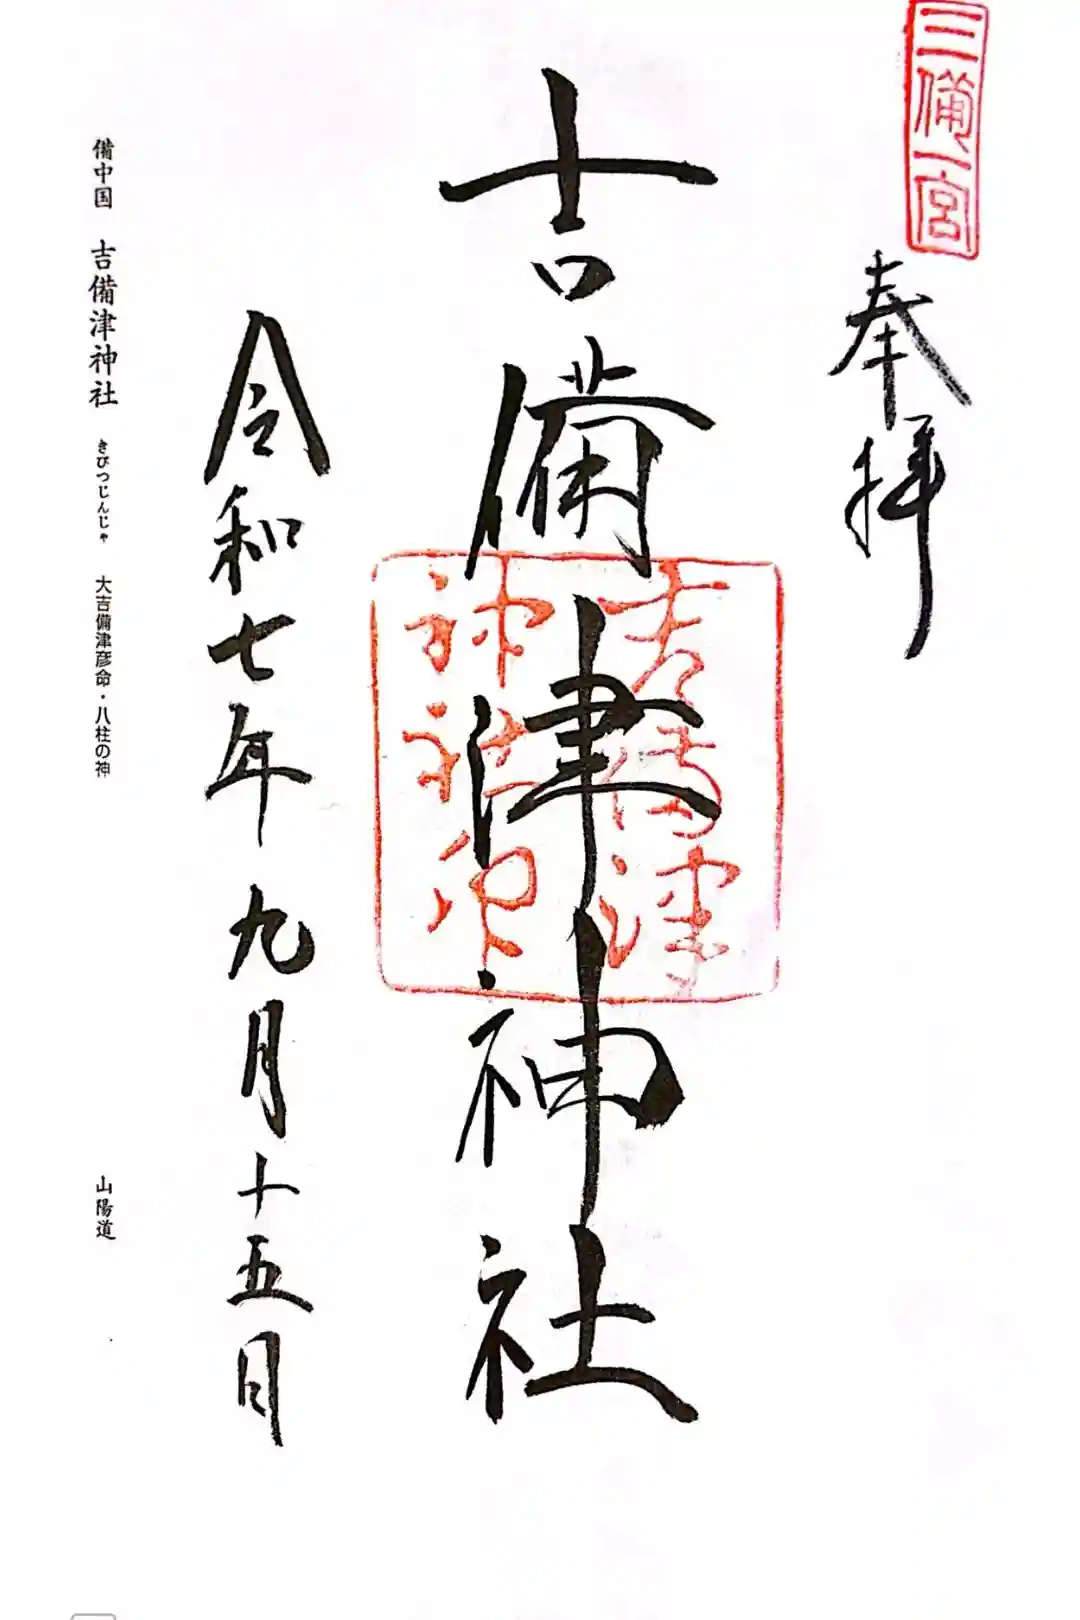 三備一宮
奉拝
吉備津神社
吉備津
神社印
令和七年九月十五日
備中国 吉備津神社 きびつじんじゃ 大吉備津彦命・八柱の神 山陽道